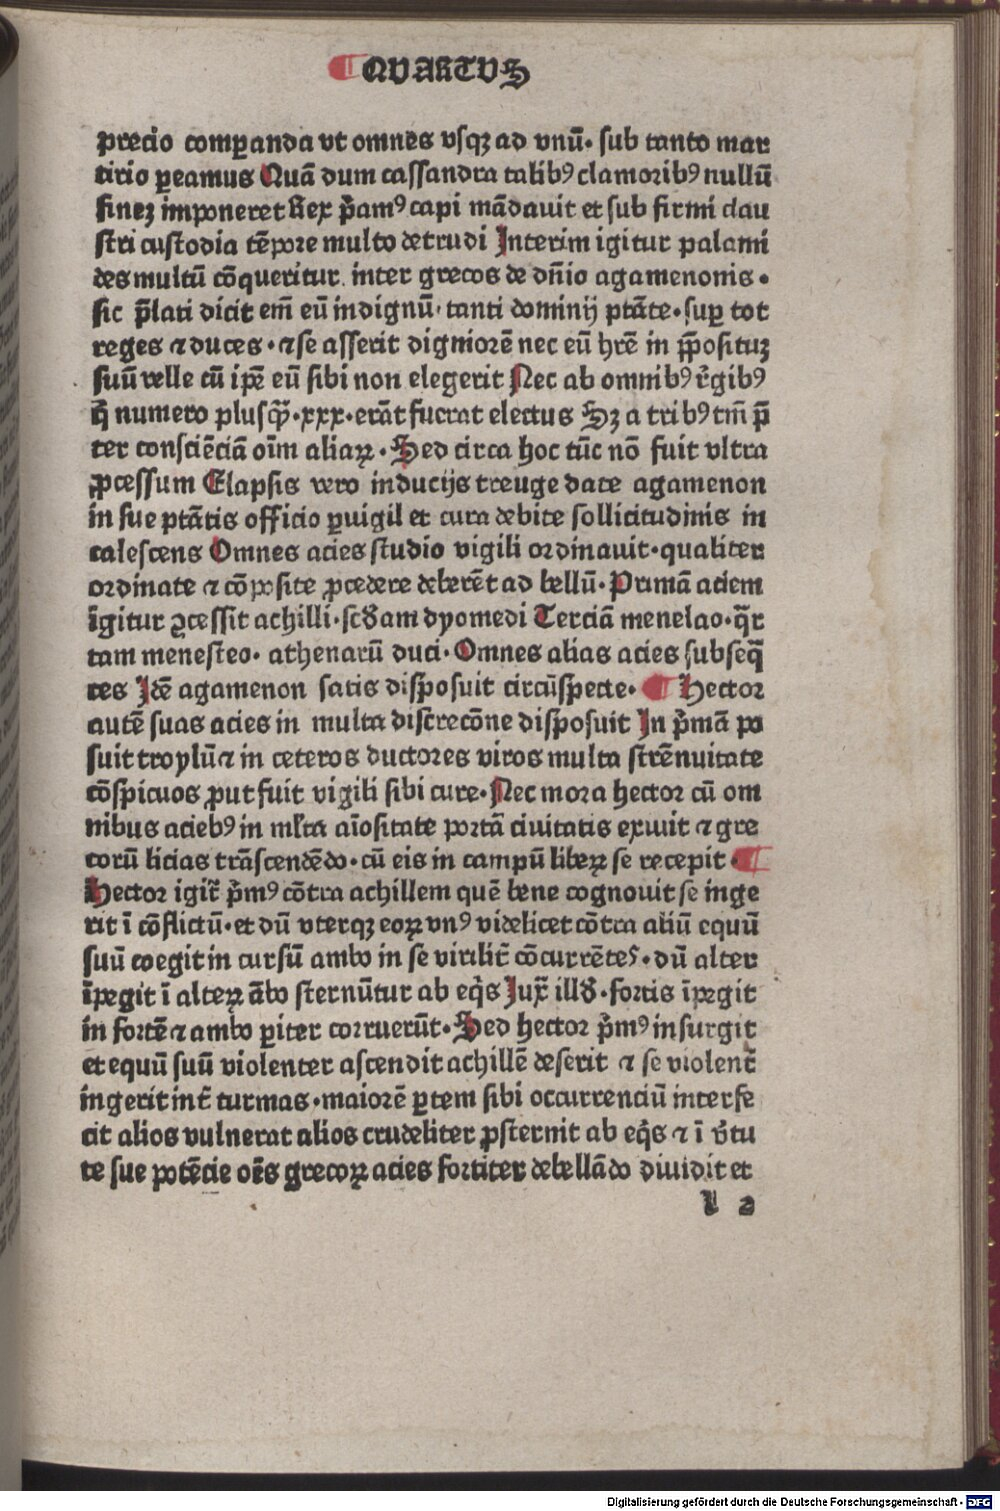 ¶ QVARTVS
precio comꝑanda vt omnes vsqꝫ ad vnū· sub tanto mar
tirio ꝑeamus Quā dum cassandra talibꝰ clamoribꝰ nullū
fineꝫ imponeret Rex p̄amꝰ capi mādauit et sub firmi clau
stri custodia tēpore multo detrudi Interim igitur palami
des multū cōqueritur inter grecos de dn̄io agamenonis·
sic p̄lati dicit em̄ eū indignū· tanti dominij ptāte· suꝑ tot
reges ⁊ duces· ⁊ se asserit digniorē nec eū hr̄e in ꝓpositūꝫ
suū velle cū ip̄e eū sibi non elegerit Nec ab omnibꝰ r̄gibꝰ
q̄ numero plusqꝫ̄·xxx·erāt fuerat electus Sꝫ a tribꝰ tm̄ p̄
ter consciēciā oīm aliaꝝ· Sed circa hoc tūc nō fuit vltra
ꝓcessum Elapsis vero inducijs treuge date agamenon
in sue ptātis officio ꝑuigil et cura debite sollicitudinis in
calescens Omnes acies studio vigili ordinauit· qualiter
ordinate ⁊ cōposite ꝓcedere deberēt ad bellū· Primā aciem
īgitur ꝯcessit achilli· scd̄am dyomedi Terciā menelao· q̄r
tam menesteo· athenarū duci· Omnes alias acies subseq̄
tes Idē agamenon satis disposuit circūspecte· ¶ Hector
autē suas acies in multa discrecōne disposuit In p̄mā po
suit troylū ⁊ in ceteros ductores viros multa strēnuitate
cōspicuos ꝓut fuit vigili sibi cure· Nec mora hector cū om
nibus aciebꝰ in ml̄ta aīositate portā ciuitatis exiuit ⁊ gre
corū licias trāscendēdo· cū eis in campū libeꝝ se recepit· ¶
Hector igit̄ p̄mꝰ cōtra achillem quē bene cognouit se inge
rit ī cōflictū· et dū vterqꝫ eoꝝ vnꝰ videlicet cōtra aliū equū
suū coegit in cursū ambo in se virilit̄ cōcurrētes· dū alter
īpegit ī alteꝝ ābo sternūtur ab eq̄s Jux̄ illd̄· fortis īpegit
in fortē ⁊ ambo ꝑiter corruerūt· Sed hector p̄mꝰ insurgit
et equū suū violenter ascendit achillē deserit ⁊ se violent̄
ingerit int̄ turmas· maiorē ꝑtem sibi occurrenciū interfe
cit alios vulnerat alios crudeliter ꝓsternit ab eq̄s ⁊ ī v̄tu
te sue potēcie oēs grecoꝝ acies fortiter debellādo diuidit et
l 2
Digitalisierung gefördert durch die Deutsche Forschungsgemeinschaft - DFG